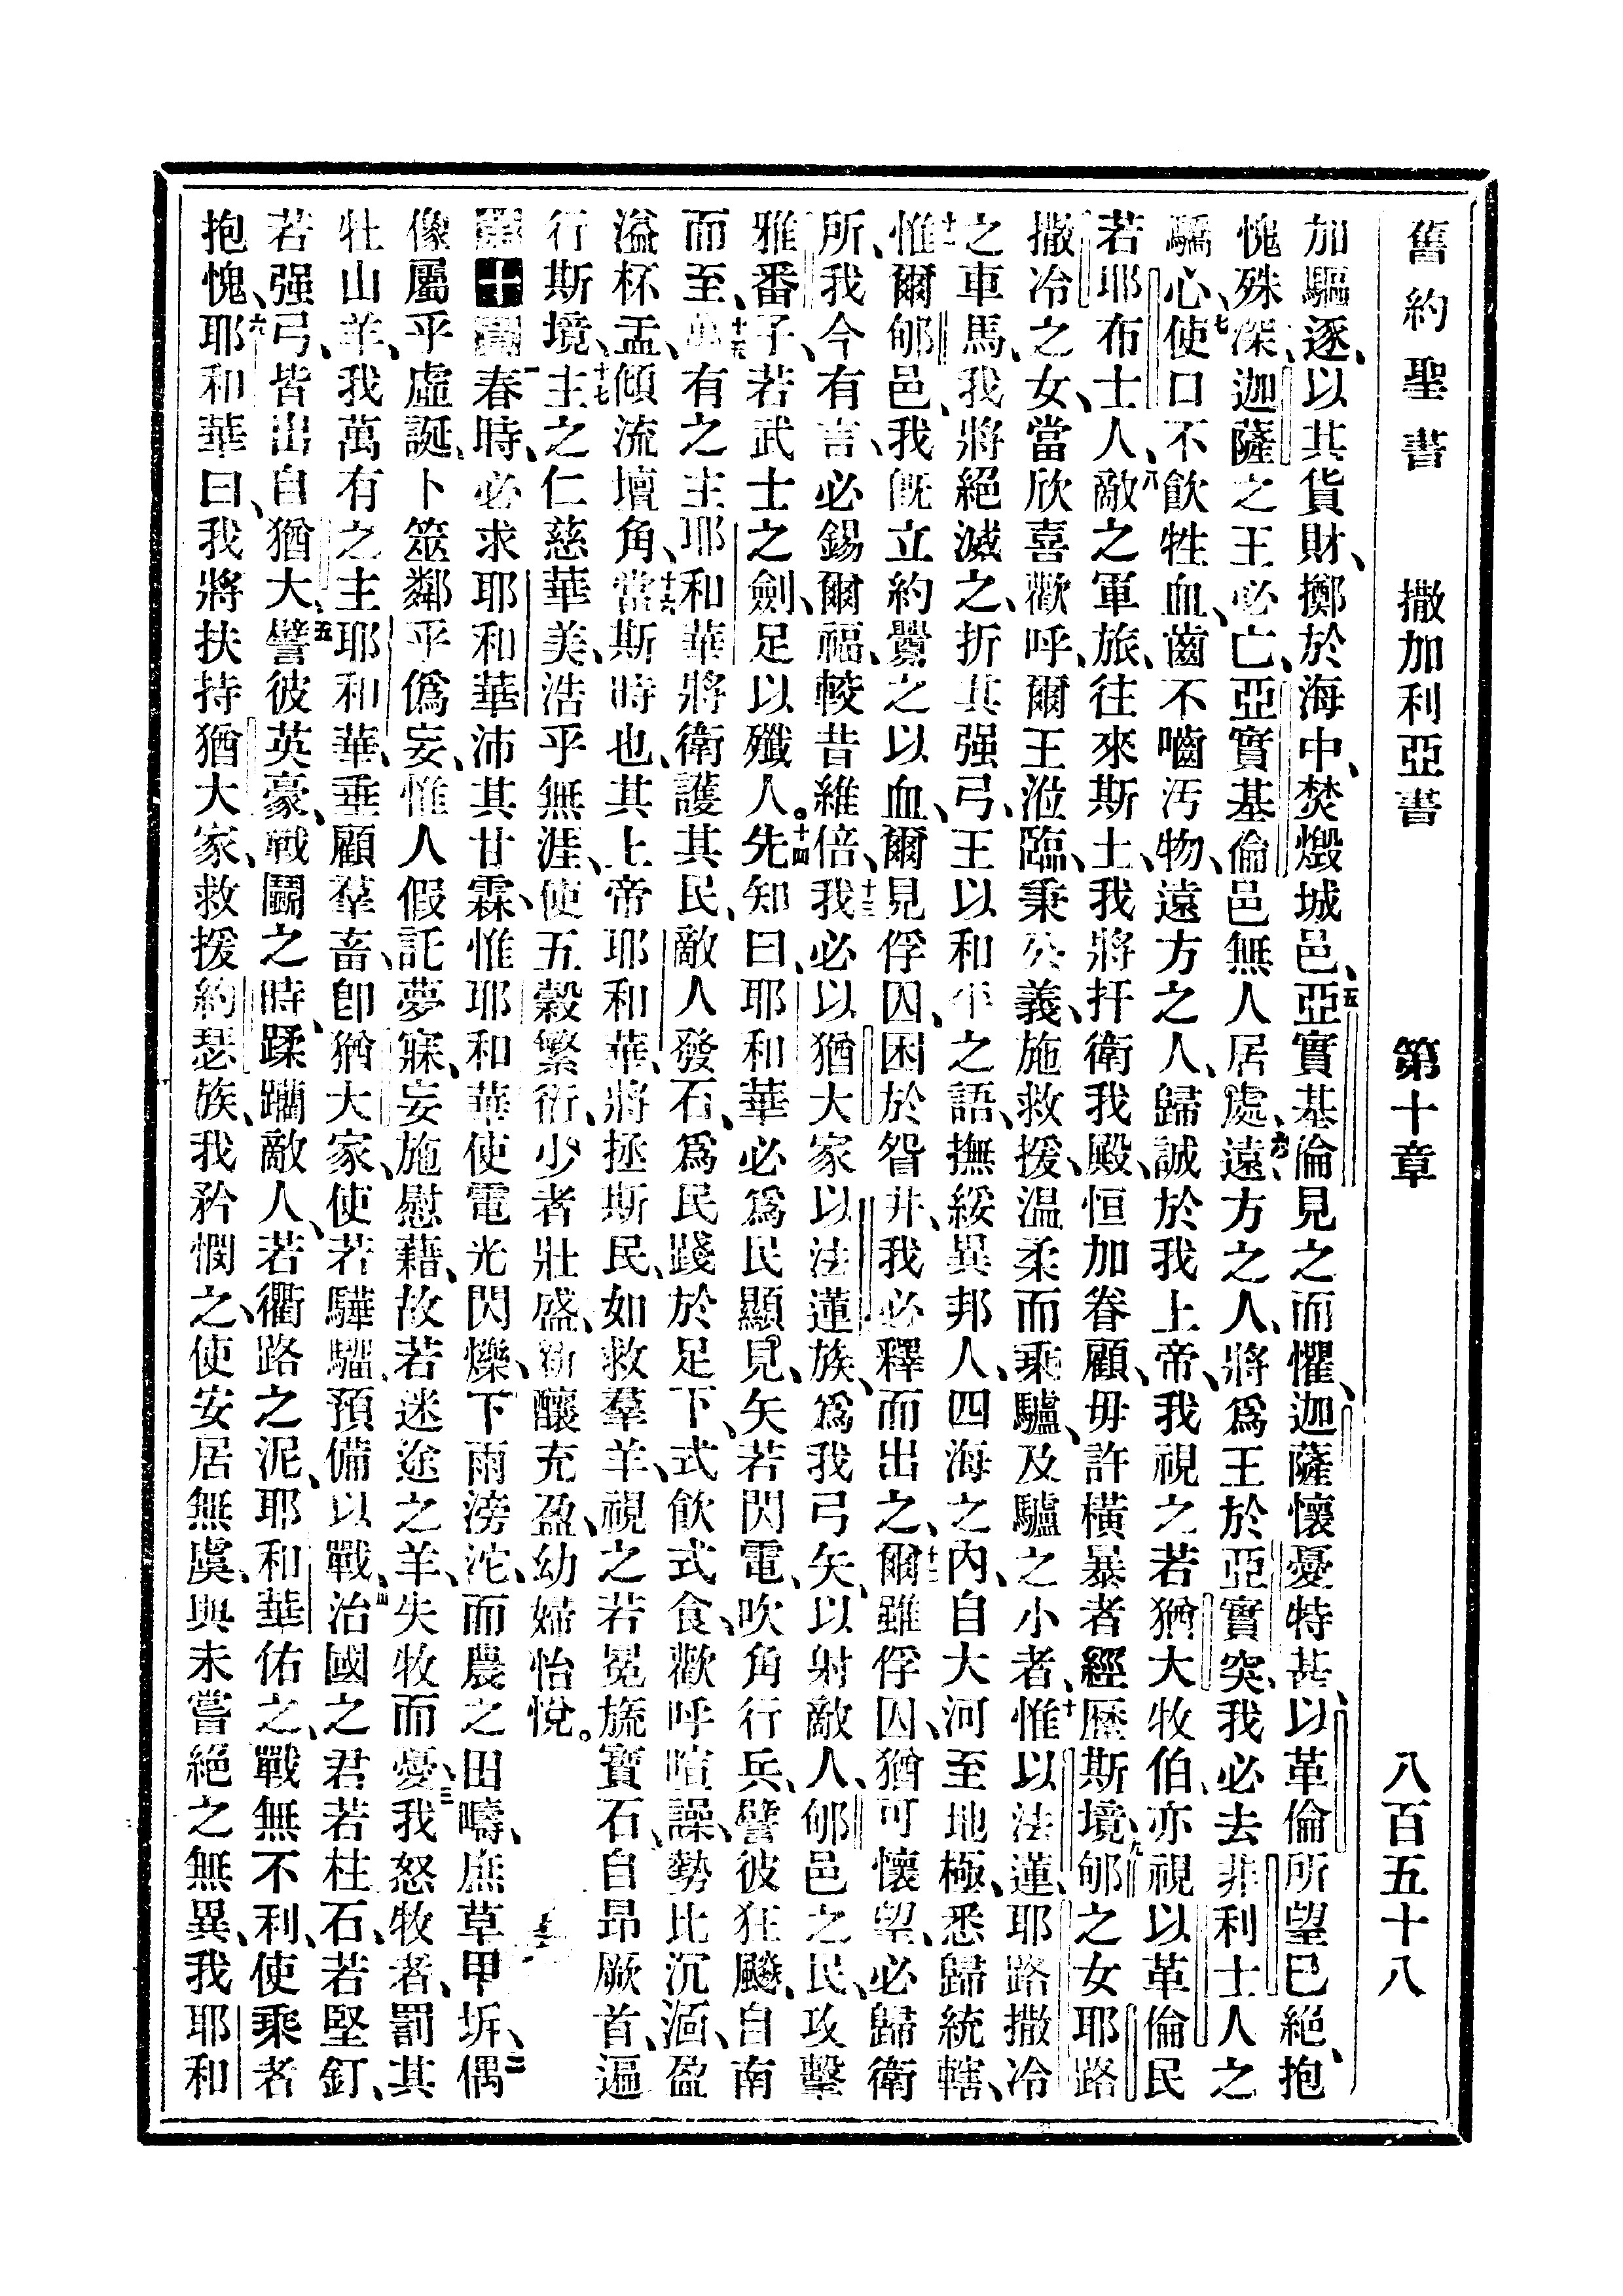 舊約聖書 撒加利亞書 第十章 八百五十八
加驅逐、以其貨財、擲於海中、焚燬城邑、五亞實基倫見之而懼、迦薩懷憂特甚、以革倫所望已絕、抱
愧殊深、迦薩之王必亡、亞實基倫邑無人居處、六遠方之人、將爲王於亞實突、我必去非利士人之
驕心、七使口不飲牲血、齒不嚙汚物、遠方之人、歸誠於我上帝、我視之若猶大牧伯、亦視以革倫民
若耶布士人、八敵之軍旅、往來斯土、我將扞衛我殿、恒加眷顧、毋許橫暴者經歷斯境、九郇之女耶路
撒冷之女、當欣喜歡呼、爾王涖臨、秉公義、施救援、温柔而乘驢、及驢之小者、十惟以法蓮、耶路撒冷
之車馬、我將絕滅之、折其强弓、王以和平之語、撫綏異邦人、四海之內、自大河至地極、悉歸統轄、
十一惟爾郇邑、我旣立約、釁之以血、爾見俘囚、困於眢井、我必釋而出之、十二爾雖俘囚、猶可懷望、必歸衛
所、我今有言、必錫爾福、較昔維倍、十三我必以猶大家以法蓮族、爲我弓矢、以射敵人、郇邑之民、攻擊
雅番子、若武士之劍、足以殲人。十四先知曰、耶和華必爲民顯見、矢若閃電、吹角行兵、譬彼狂飈、自南
而至、十五萬有之主耶和華將衛護其民、敵人發石、爲民踐於足下、式飲式食、歡呼喧譟、勢比沉湎、盈
溢杯盂、傾流壇角、十六當斯時也、其上帝耶和華、將拯斯民、如救羣羊、視之若冕旒寶石、自昂厥首、遍
行斯境、十七主之仁慈華美、浩乎無涯、使五穀繁衍、少者壯盛、新釀充盈、幼婦怡悅。
第十章一春時、必求耶和華沛其甘霖、惟耶和華使電光閃爍、下雨滂沱、而農之田疇、庶草甲坼、二偶
像屬乎虛誕、卜筮鄰乎僞妄、惟人假託夢寐、妄施慰藉、故若迷途之羊、失牧而憂、三我怒牧者、罰其
牡山羊、我萬有之主耶和華、垂顧羣畜、卽猶大家、使若驊騮、預備以戰、四治國之君、若柱石、若堅釘、
若强弓、皆出自猶大、五譬彼英豪、戰鬭之時、蹂躪敵人、若衢路之泥、耶和華佑之、戰無不利、使乘者
抱愧、六耶和華曰、我將扶持猶大家、救援約瑟族、我矜憫之、使安居無虞、與未嘗絕之無異、我耶和